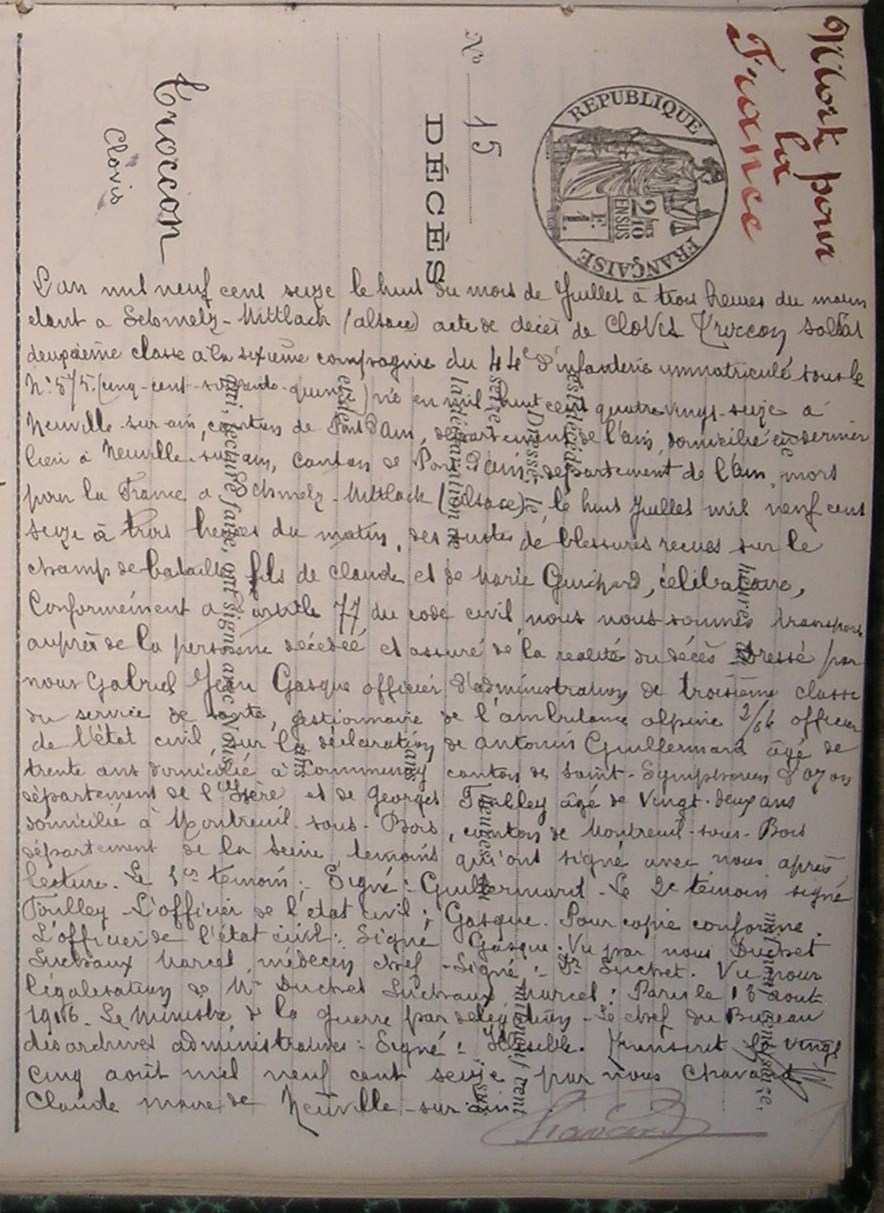 Mort pour
la
France
REPUBLIQUE FRANÇAISE
2/10 EN SUS
N° 15
DÉCÈS
Troccon
Clovis
L'an mil neuf cent seize le huit du mois de Juillet à trois heures du matin
étant a - Mittlach (alsace) acte de décès de Clovis Troccon soldat
deuxième classe à la sixième compagnie du 44e d'infanterie immatriculé sous le
N° 575 (cinq-cent-soixante-quinze) né en mil huit cent quatre vingt-seize à
Neuville-sur-ain, canton de Pont d'ain, département de l'ain, domicilié en dernier
lieu à Neuville-sur-ain, canton de Pont d'ain, département de l'ain, mort
pour la France a - Mittlach (Alsace), le huit Juillet mil neuf cent
seize à trois heures du matin, des suites de blessures recues sur le
champ de bataille, fils de Claude et de Marie Guichard, célibataire,
Conformément a l'article 77 du code civil, nous nous sommes transporté
auprès de la personne décédée et assuré de la realité du décès Dressé par
nous Gabriel Jean Gasque officier d'administration de troisième classe
du service de santé, gestionnaire de l'ambulance alpine 2/64 officier
de l'état civil, sur la déclaration de Antonin Guillermard âgé de
trente ans domicilié à Communay canton de Saint-Symphorien d'ozon
département de l'Isère et de Georges Foulley âgé de vingt-deux ans
domicilié à Montreuil-sous-Bois, canton de Montreuil-sous-Bois
département de la Seine, témoins qui ont signé avec nous après
lecture. Le 1er temoin: Signé: Guillermard - Le 2e témoin signé
Foulley - L'officier de l'état civil: Gasque. Pour copie conforme.
L'officier de l'état civil: Signé Gasque. Vu par nous Duchet
Suchaux Marcel, médecin chef - Signé: Dr Suchet. Vu pour
légalisation de Mr Duchet Suchaux Marcel: Paris le 13 aout
1916. Le Ministre de la Guerre par délégation - Le chef du Bureau
des archives administratives: Signé: . Transcrit le vingt
cinq août mil neuf cent seize par nous Chavard
Claude maire de Neuville-sur-ain